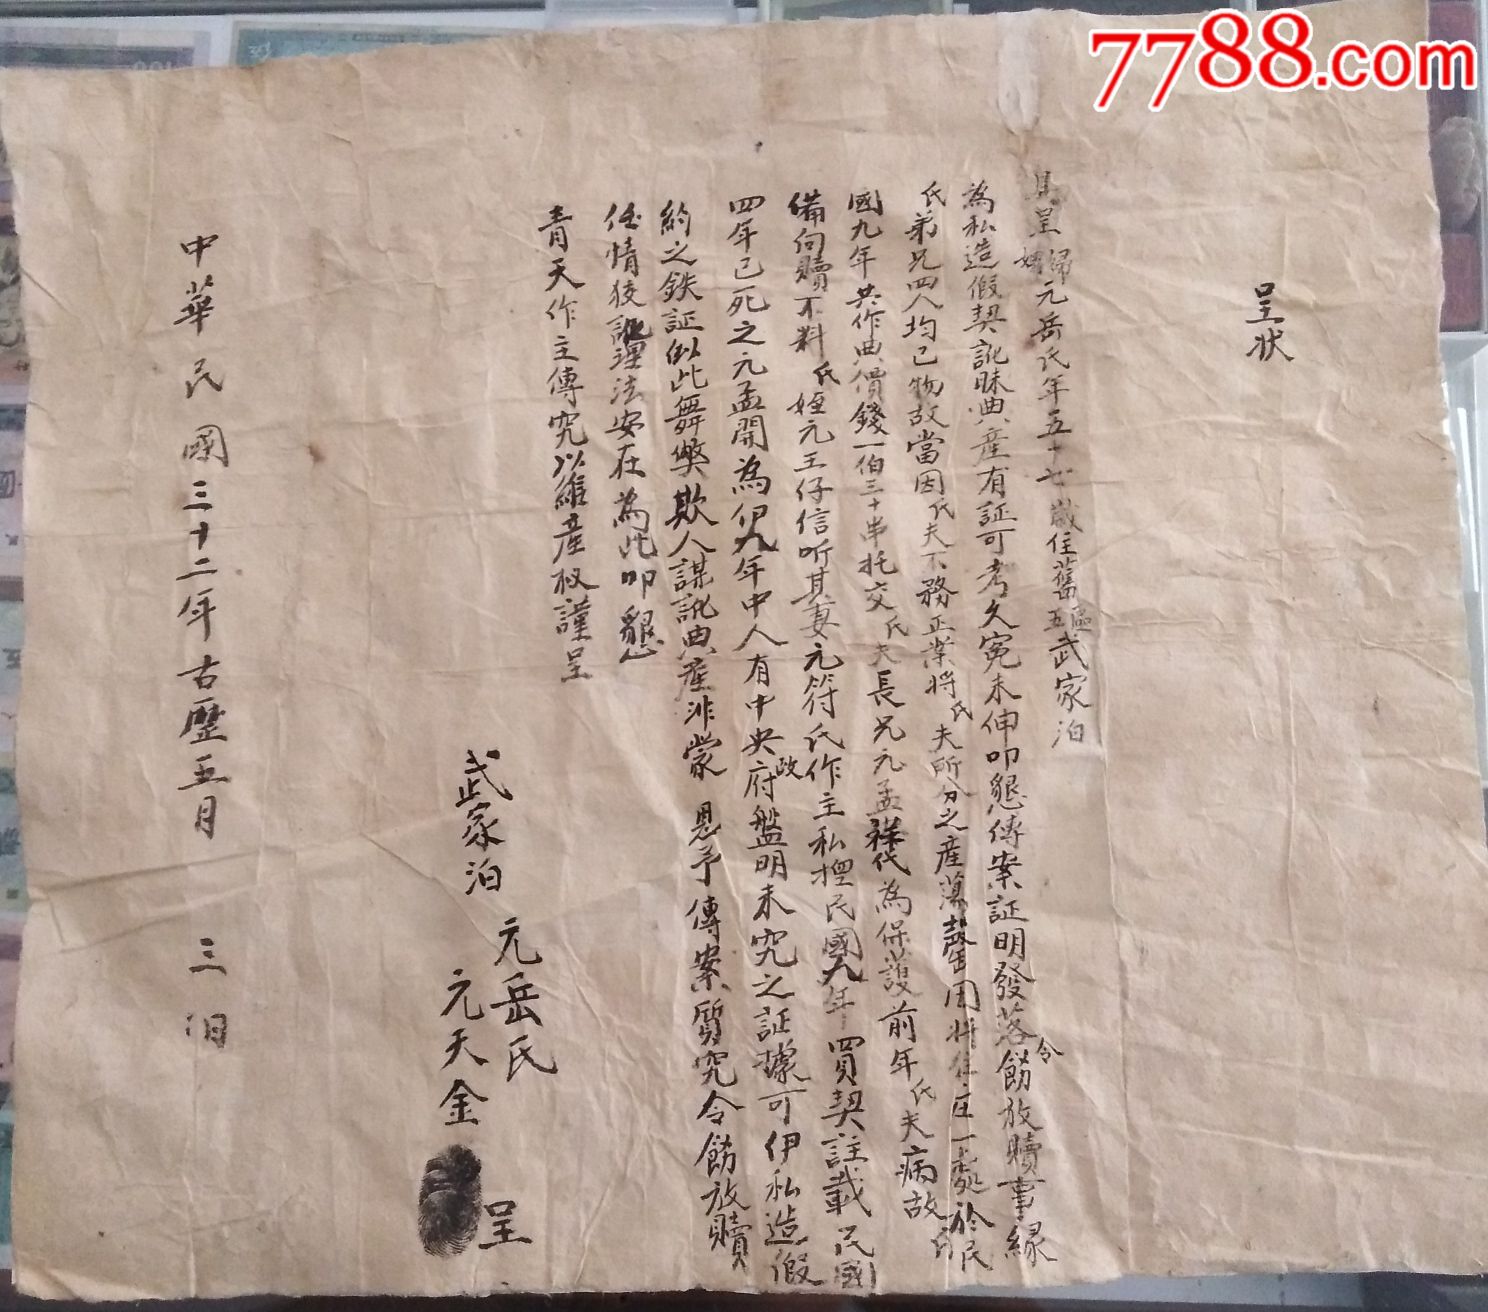 7788.com
呈状
具呈孀婦元岳氏年五十七歲住舊五區武家泊
為私造假契訛昧典產有証可考久冤未伸叩懇傳案証明發落令飭放贖事緣
氏弟兄四人均已物故當因氏夫不務正業將氏夫所分之產蕩罄因將住庄一處於民
國九年共作典價錢一伯三十串托交氏夫長兄元孟祥代為保護前年氏夫病故氏
備向贖不料氏姪元王仔信听其妻元符氏作主私捏民國九年買契註載民國
四年已死之元孟開為伊九年中人有中央政府盤明未究之証據可伊私造假
約之鉄証似此舞獘欺人謀訛典產非蒙 恩予傳案質究令飭放贖
任情狡訛理法安在為此叩懇
青天作主傳究以維產权謹呈
武家泊 元岳氏 元天金 呈
中華民國三十二年古歷五月 三 日